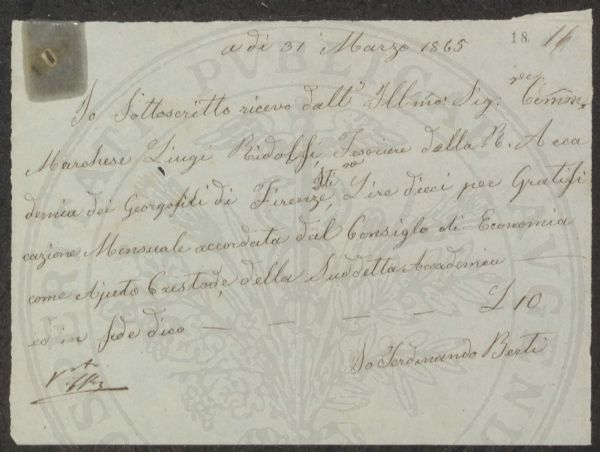 a dì 31 Marzo 1865
18. 14
Io Sottoscritto ricevo dall'o Illmo: Sig:re Comm.
Marchese Luigi Ridolfi, Tesoriere della R. Acca
demia dei Georgofili di Firenze, Lire dieci per Gratifi
cazione Mensuale accordata dal Consiglo di Economia
come Ajuto Custode della Suddetta Accademia
ed in fede dico — — — — £ 10
Io Ferdinando Berti